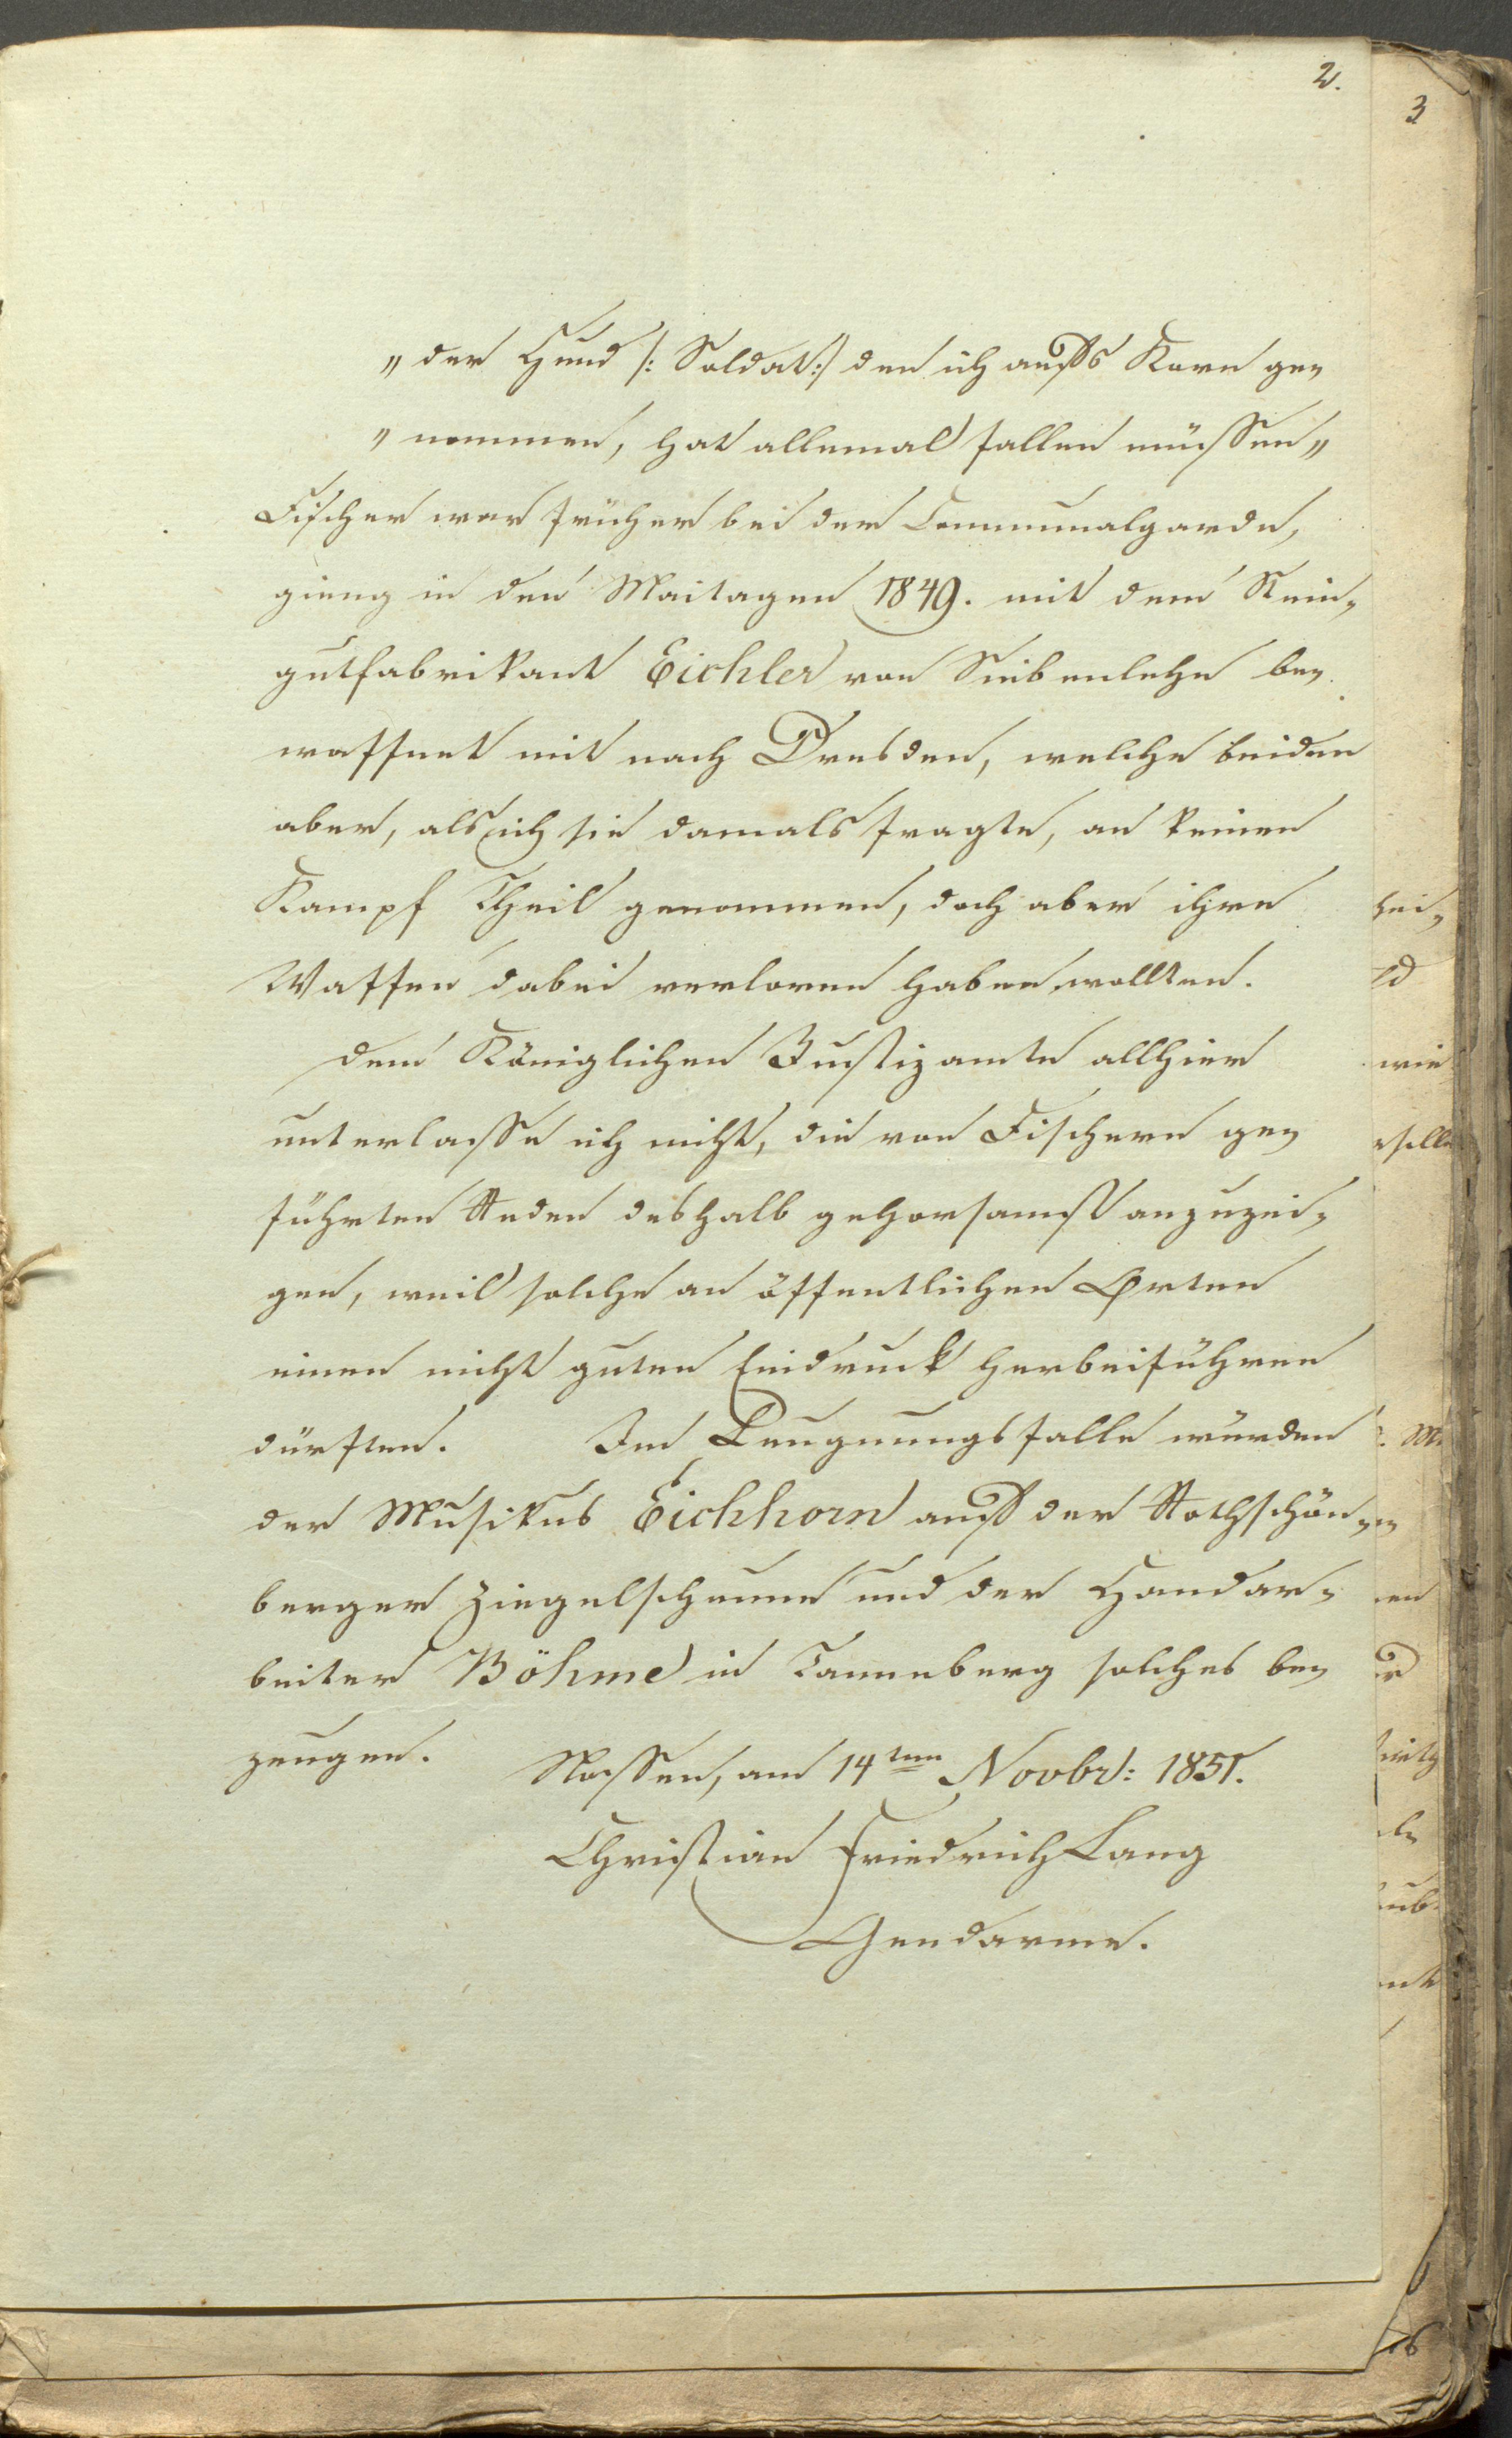 2.
3
„der Hund /: Soldat :/ den ich aufs Korn ge-
„nommen, hat allemal fallen müssen„
Fischer war früher bei der Communalgarde,
gieng in den Maitagen 1849. mit dem Stein-
gutfabrikant Eichler von Siebenlehn be-
waffnet mit nach Dresden, welche beiden
aber, als ich sie damals fragte, an keinen
Kampf Theil genommen, doch aber ihre
Waffen dabei verloren haben wollten.
Dem Königlichen Justizamte allhier
unterlasse ich nicht, die von Fischern ge-
führten Reden deshalb gehorsamst anzuzei-
gen, weil solche an öffentlichen Orten
einen nicht guten Eindruck herbeiführen
dürften. Im Leugnungsfalle würden
der Musikus Eichhorn auf der Rothschön-
berger Ziegelscheune und der Handar-
beiter Böhme in Tanneberg solches be-
zeugen. Nossen, am 14ten Novbr: 1851.
Christian Friedrich Lang
Gendarme.